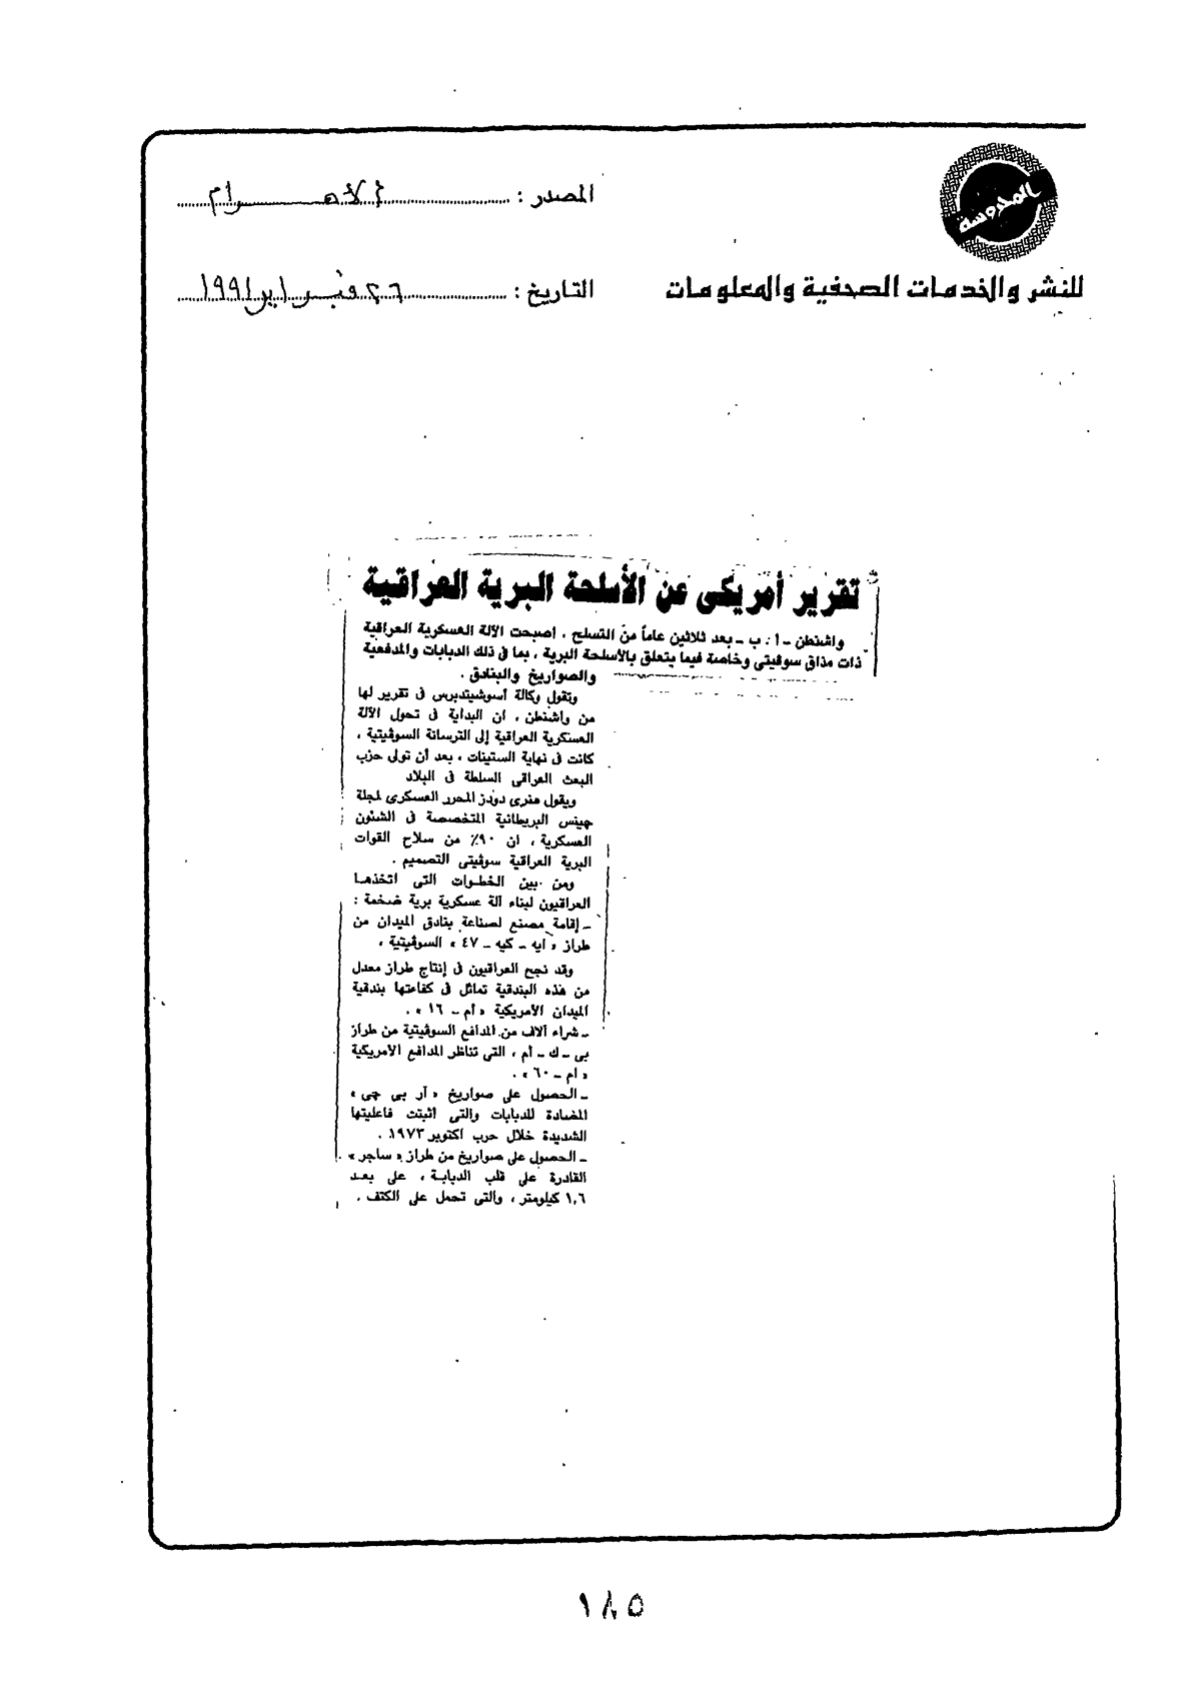 المحروسة
للنشر والخدمات الصحفية والمعلومات
المصدر : الأهرام
التاريخ : ٢٦ فبراير ١٩٩١
تقرير أمريكى عن الأسلحة البرية العراقية
واشنطن ـ ا . ب ـ بعد ثلاثين عاماً من التسلح ، اصبحت الآلة العسكرية العراقية
ذات مذاق سوڤيتى وخاصة فيما يتعلق بالأسلحة البرية ، بما فى ذلك الدبابات والمدفعية
والصواريخ والبنادق .
وتقول وكالة أسوشيتدبرس فى تقرير لها
من واشنطن ، ان البداية فى تحول الآلة
العسكرية العراقية إلى الترسانة السوڤيتية ،
كانت فى نهاية الستينات ، بعد أن تولى حزب
البعث العراقى السلطة فى البلاد
ويقول هنرى دودز المحرر العسكرى لمجلة
جينس البريطانية المتخصصة فى الشئون
العسكرية ، ان ٩٠٪ من سلاح القوات
البرية العراقية سوڤيتى التصميم .
ومن بين الخطوات التى اتخذها
العراقيون لبناء آلة عسكرية برية ضخمة :
ـ إقامة مصنع لصناعة بنادق الميدان من
طراز « ايه ـ كيه ـ ٤٧ » السوڤيتية ،
وقد نجح العراقيون فى إنتاج طراز معدل
من هذه البندقية تماثل فى كفاءتها بندقية
الميدان الأمريكية « أم ـ ١٦ » .
ـ شراء آلاف من المدافع السوڤيتية من طراز
بى ـ ك ـ أم ، التى تناظر المدافع الأمريكية
« ام ـ ٦٠ » .
ـ الحصول على صواريخ « آر بى جى »
المضادة للدبابات والتى اثبتت فاعليتها
الشديدة خلال حرب اكتوبر ١٩٧٣ .
ـ الحصول على صواريخ من طراز « ساجر »
القادرة على قلب الدبابة ، على بعد
١,٦ كيلومتر ، والتى تحمل على الكتف .
١٨٥